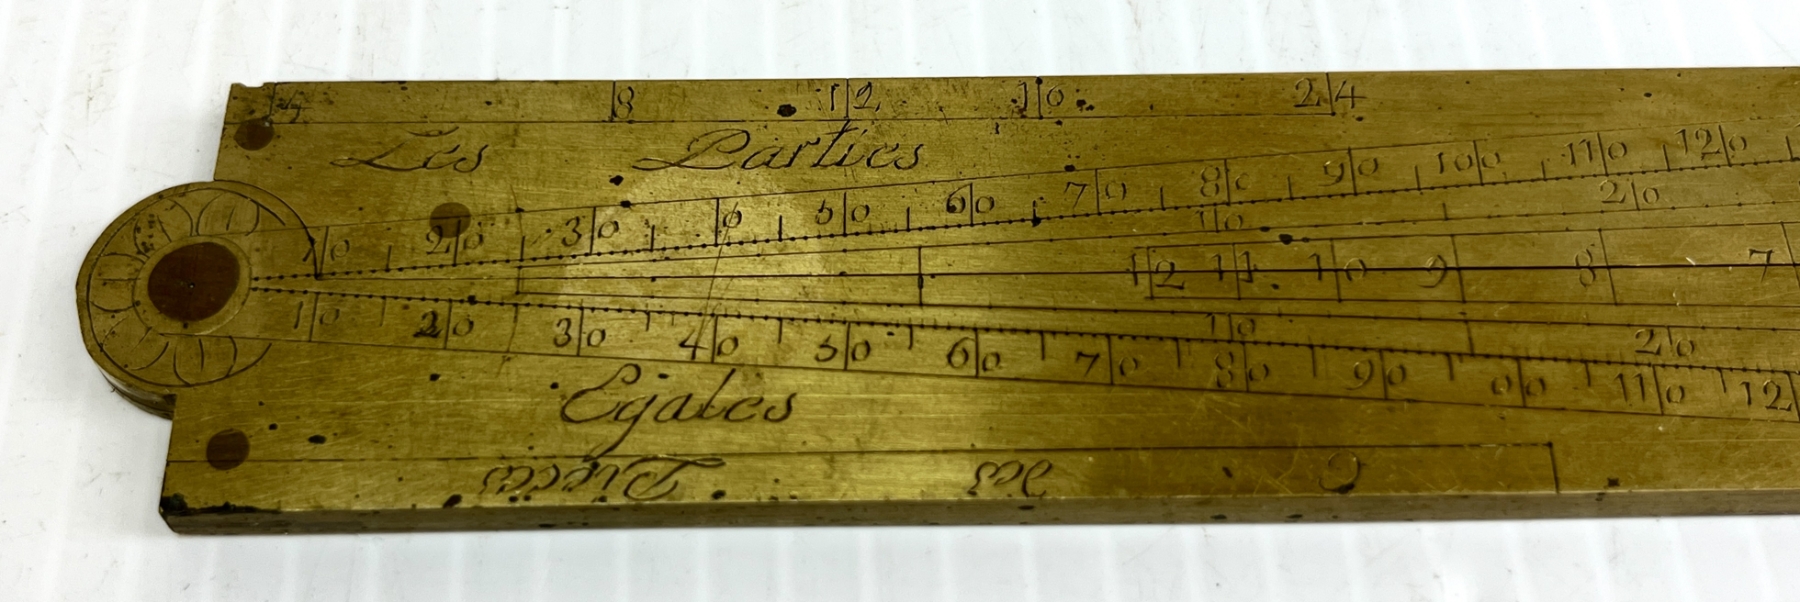 4 8 12 16 24
Les Parties
10 20 30 40 50 60 70 80 90 100 110 120
10 20
12 11 10 9 8 7
10 20
10 20 30 40 50 60 70 80 90 100 110 12
Egales
Pieces des